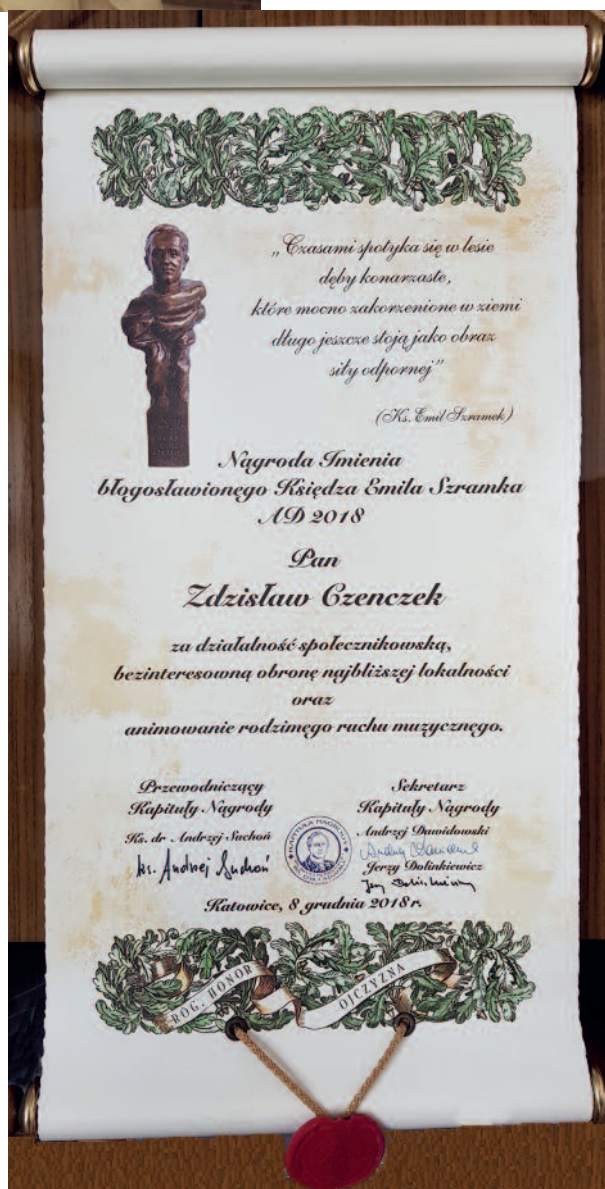 „Czasami spotyka się w lesie
dęby konarzaste,
które mocno zakorzenione w ziemi
długo jeszcze stoją jako obraz
siły odpornej”
(Ks. Emil Szramek)
Nagroda Imienia
błogosławionego Księdza Emila Szramka
AD 2018
Pan
Zdzisław Czenczek
za działalność społecznikowską,
bezinteresowną obronę najbliższej lokalności
oraz
animowanie rodzimego ruchu muzycznego.
Przewodniczący
Kapituły Nagrody
Ks. dr Andrzej Suchoń
ks. Andrzej Suchoń
Sekretarz
Kapituły Nagrody
Andrzej Dawidowski
Jerzy Dolinkiewicz
KAPITUŁA NAGRODY
Katowice, 8 grudnia 2018 r.
BÓG, HONOR
OJCZYZNA